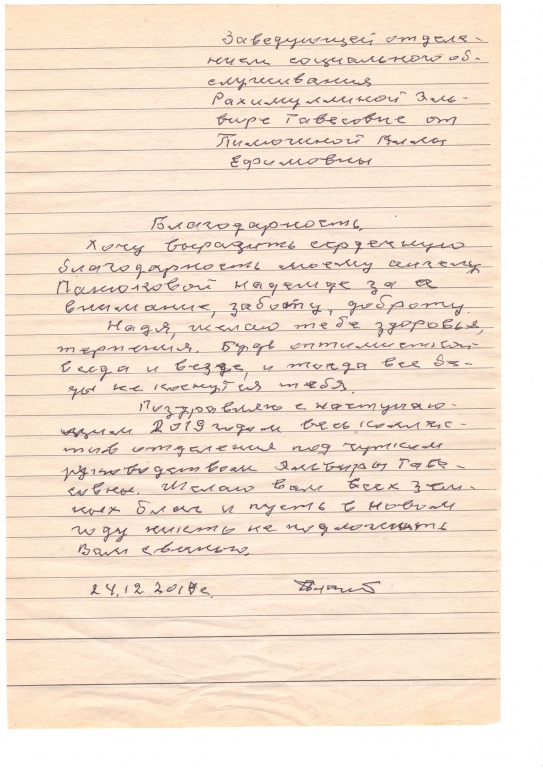 Заведующей отделе-
нием социального об-
служивания
Рахимуллиной Эль-
вире Гавесовне от
Ефимовны
Благодарность.
Хочу выразить сердечную
благодарность моему ангелу
Панюковой Надежде за её
внимание, заботу, доброту.
Надя, желаю тебе здоровья,
терпения. Будь оптимисткой
всегда и везде, и тогда все бе-
ды не коснутся тебя.
Поздравляю с наступаю-
щим 2019 годом весь коллек-
тив отделения под чутким
руководством Эльвиры Гаве-
совны. Желаю вам всех зем-
ных благ и пусть в новом
году никто не подложить
Вам свинью.
24.12 2018г.